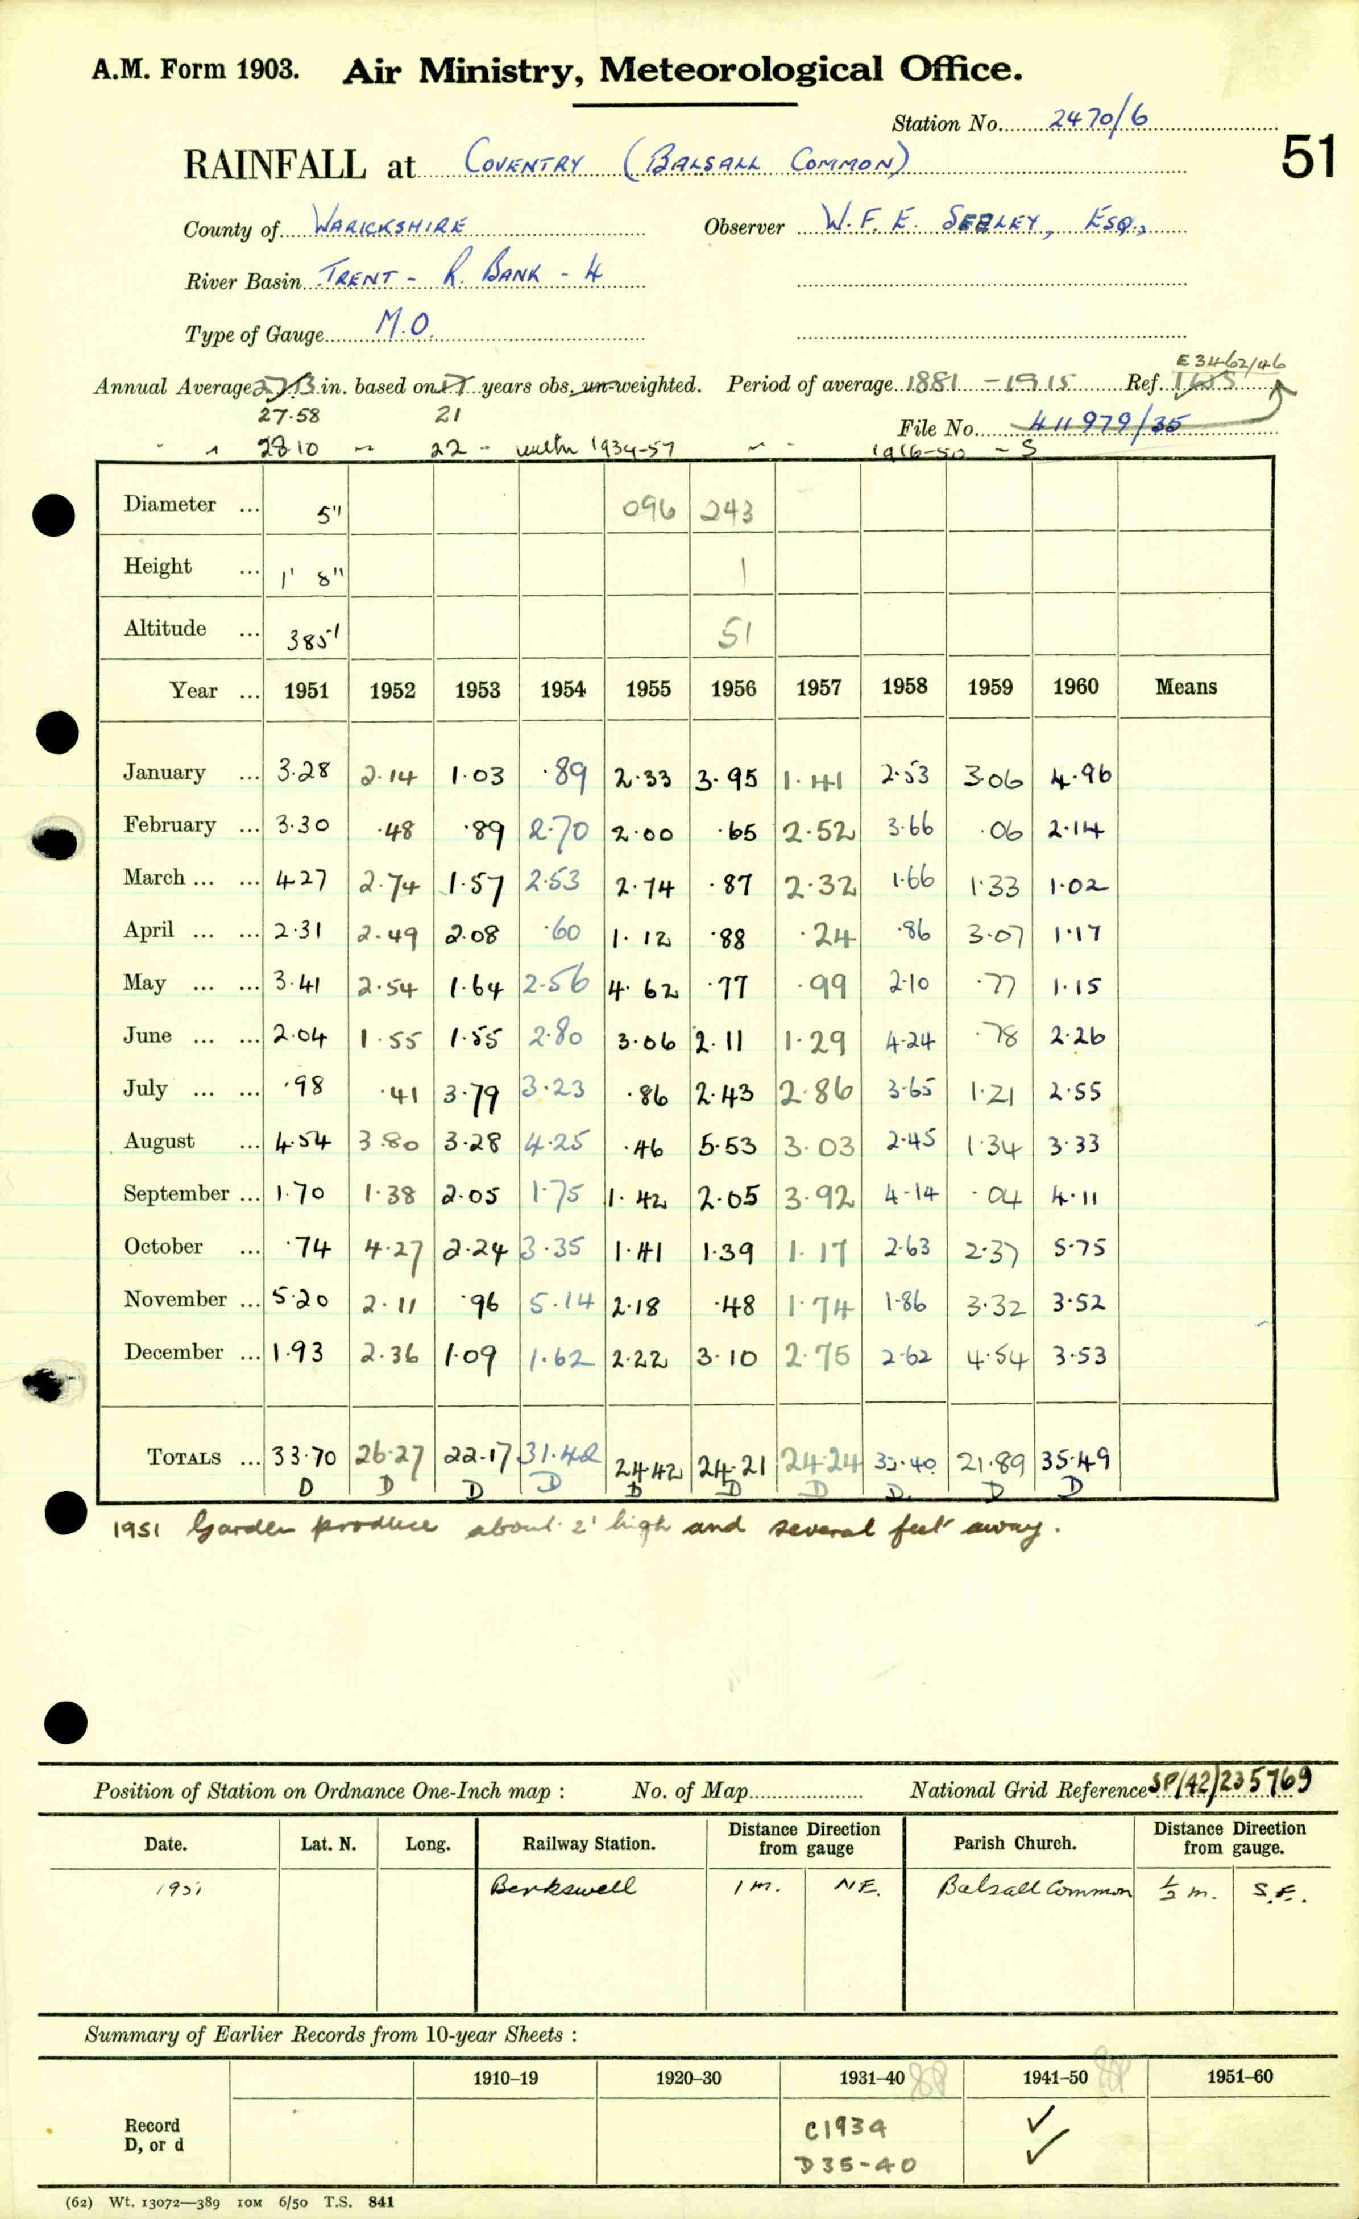 A.M. Form 1903. Air Ministry, Meteorological Office.
Station No. 2470/6
51
RAINFALL at COVENTRY (BALSALL COMMON)
County of WARICKSHIRE Observer W. F. E. SEELEY, ESQ.,
River Basin TRENT - R. BANK - 4
Type of Gauge M.O.
E3462/46
Annual Average in. based on 17 years obs. un-weighted. Period of average 1881 - 1915 Ref.
27.58 21
File No. 411979/35
" " 28.10 " 22 " 1934-57 " " 1916-50 - S
Diameter ... 5" 096 243
Height ... 1' 8" 1
Altitude ... 385' 51
Year ... 1951 1952 1953 1954 1955 1956 1957 1958 1959 1960 Means
January ... 3.28 2.14 1.03 .89 2.33 3.95 1.41 2.53 3.06 4.96
February ... 3.30 .48 .89 2.70 2.00 .65 2.52 3.66 .06 2.14
March ... ... 4.27 2.74 1.57 2.53 2.74 .87 2.32 1.66 1.33 1.02
April ... ... 2.31 2.49 2.08 .60 1.12 .88 .24 .86 3.07 1.17
May ... ... 3.41 2.54 1.64 2.56 4.62 .77 .99 2.10 .77 1.15
June ... ... 2.04 1.55 1.55 2.80 3.06 2.11 1.29 4.24 .78 2.26
July ... ... .98 .41 3.79 3.23 .86 2.43 2.86 3.65 1.21 2.55
August ... 4.54 3.80 3.28 4.25 .46 5.53 3.03 2.45 1.34 3.33
September ... 1.70 1.38 2.05 1.75 1.42 2.05 3.92 4.14 .04 4.11
October ... .74 4.27 2.24 3.35 1.41 1.39 1.17 2.63 2.37 5.75
November ... 5.20 2.11 .96 5.14 2.18 .48 1.74 1.86 3.32 3.52
December ... 1.93 2.36 1.09 1.62 2.22 3.10 2.75 2.62 4.54 3.53
TOTALS ... 33.70 26.27 22.17 31.42 24.42 24.21 24.24 32.40 21.89 35.49
D D D D D D D D D D
1951 Garden produce about 2' high and several feet away.
Position of Station on Ordnance One-Inch map : No. of Map National Grid Reference SP/42/235769
Date. Lat. N. Long. Railway Station. Distance from Direction gauge Parish Church. Distance from Direction gauge.
1951 Berkswell 1 m. NE. Balsall Common ½ m. S.E.
Summary of Earlier Records from 10-year Sheets :
1910–19 1920–30 1931–40 1941–50 1951–60
Record C1934 ✓
D, or d D35-40 ✓
(62) Wt. 13072—389 10M 6/50 T.S. 841